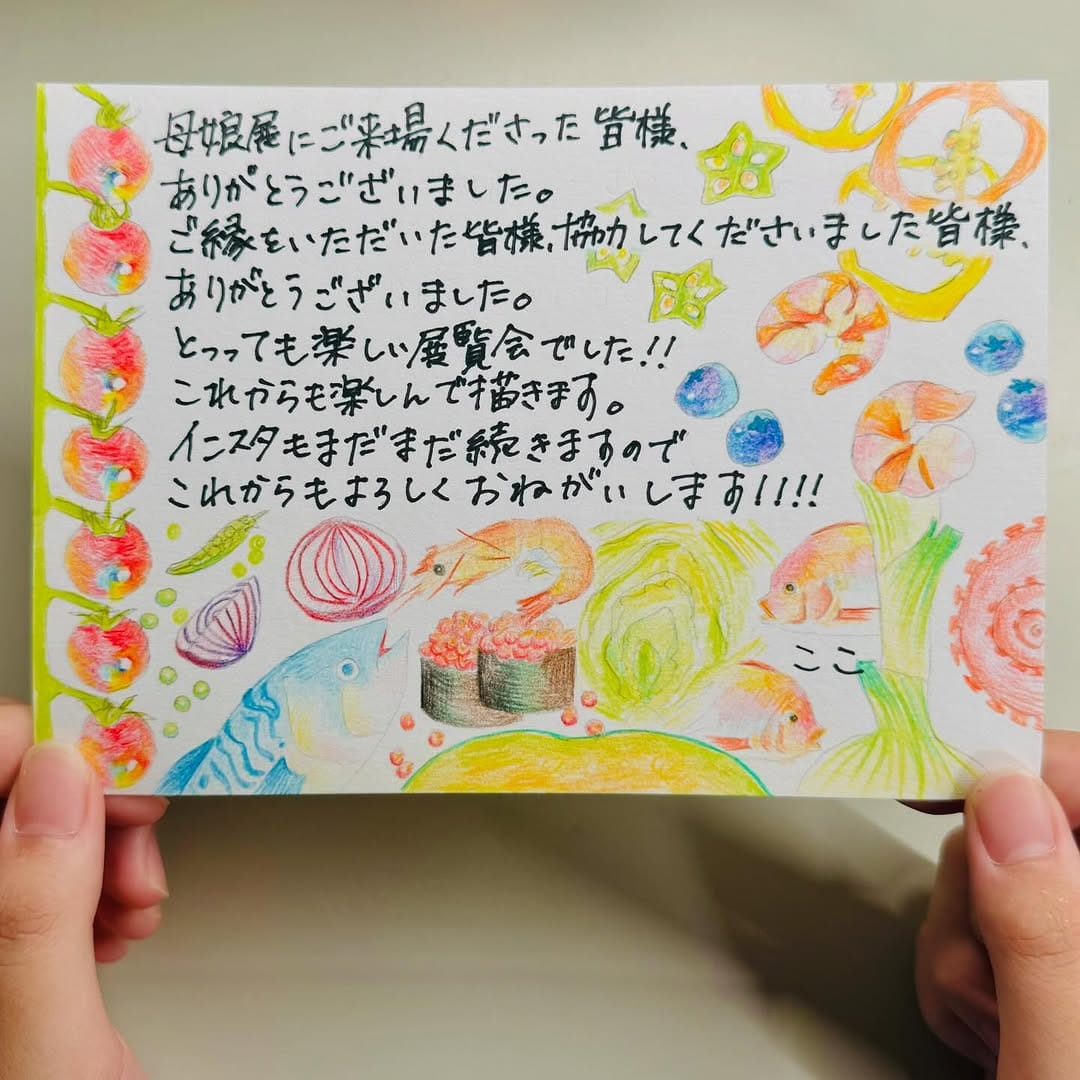 母娘展にご来場くださった皆様、
ありがとうございました。
ご縁をいただいた皆様、協力してくださいました皆様、
ありがとうございました。
とっっても楽しい展覧会でした!!
これからも楽しんで描きます。
インスタもまだまだ続きますので
これからもよろしくおねがいします!!!!
ここ